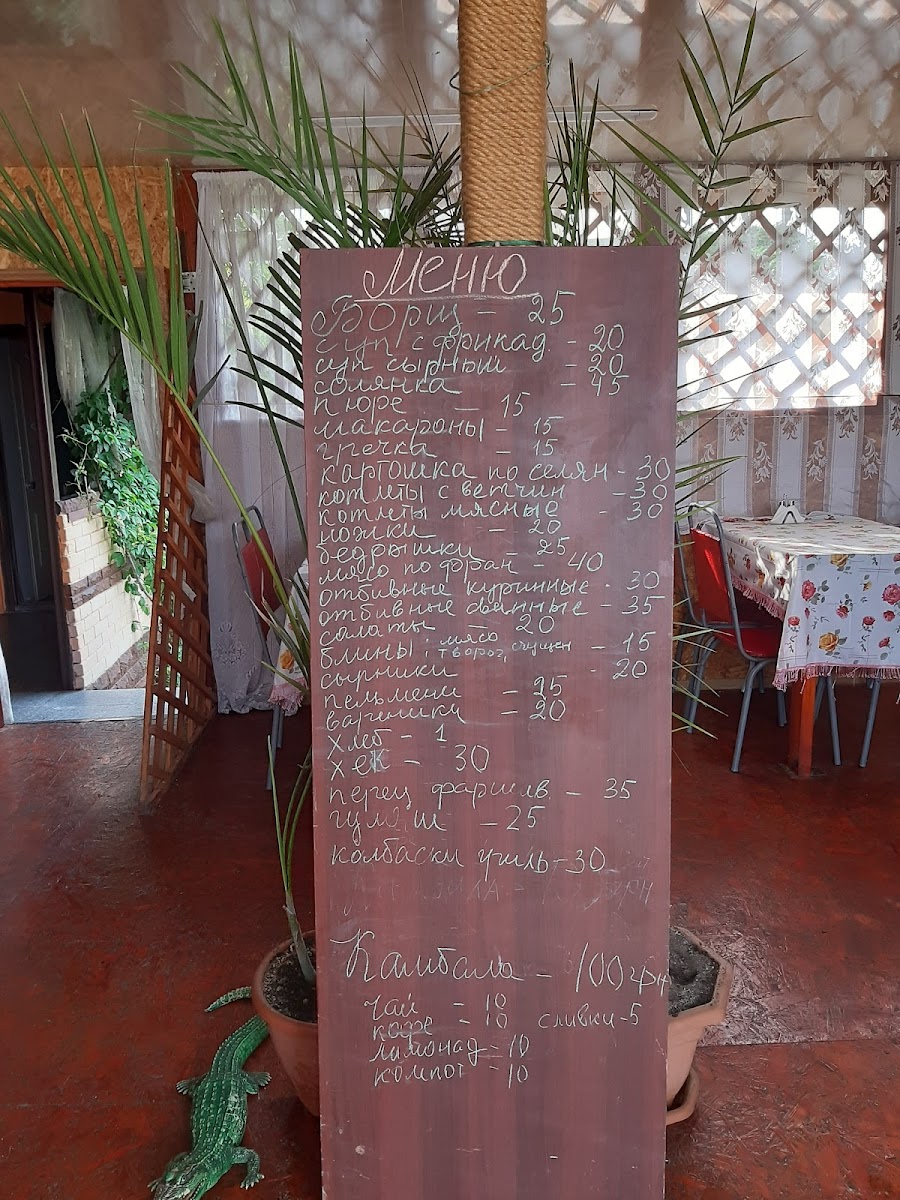 Меню
Борщ - 25
суп с фрикад. - 20
суп сырный - 20
солянка - 45
пюре - 15
макароны - 15
гречка - 15
картошка по селян - 30
котлеты с ветчин - 30
котлеты мясные - 30
ножки - 20
бедрышки - 25
мясо по фран - 40
отбивные куринные - 30
отбивные свинные - 35
салаты - 20
блины: мясо творог, сгущен - 15
сырники - 20
пельмени - 25
вареники - 20
хлеб - 1
хек - 30
перец фаршив. - 35
гуляш - 25
колбаски гриль - 30
Камбала - 100 грн
чай - 10
кофе - 10 сливки - 5
лимонад - 10
компот - 10